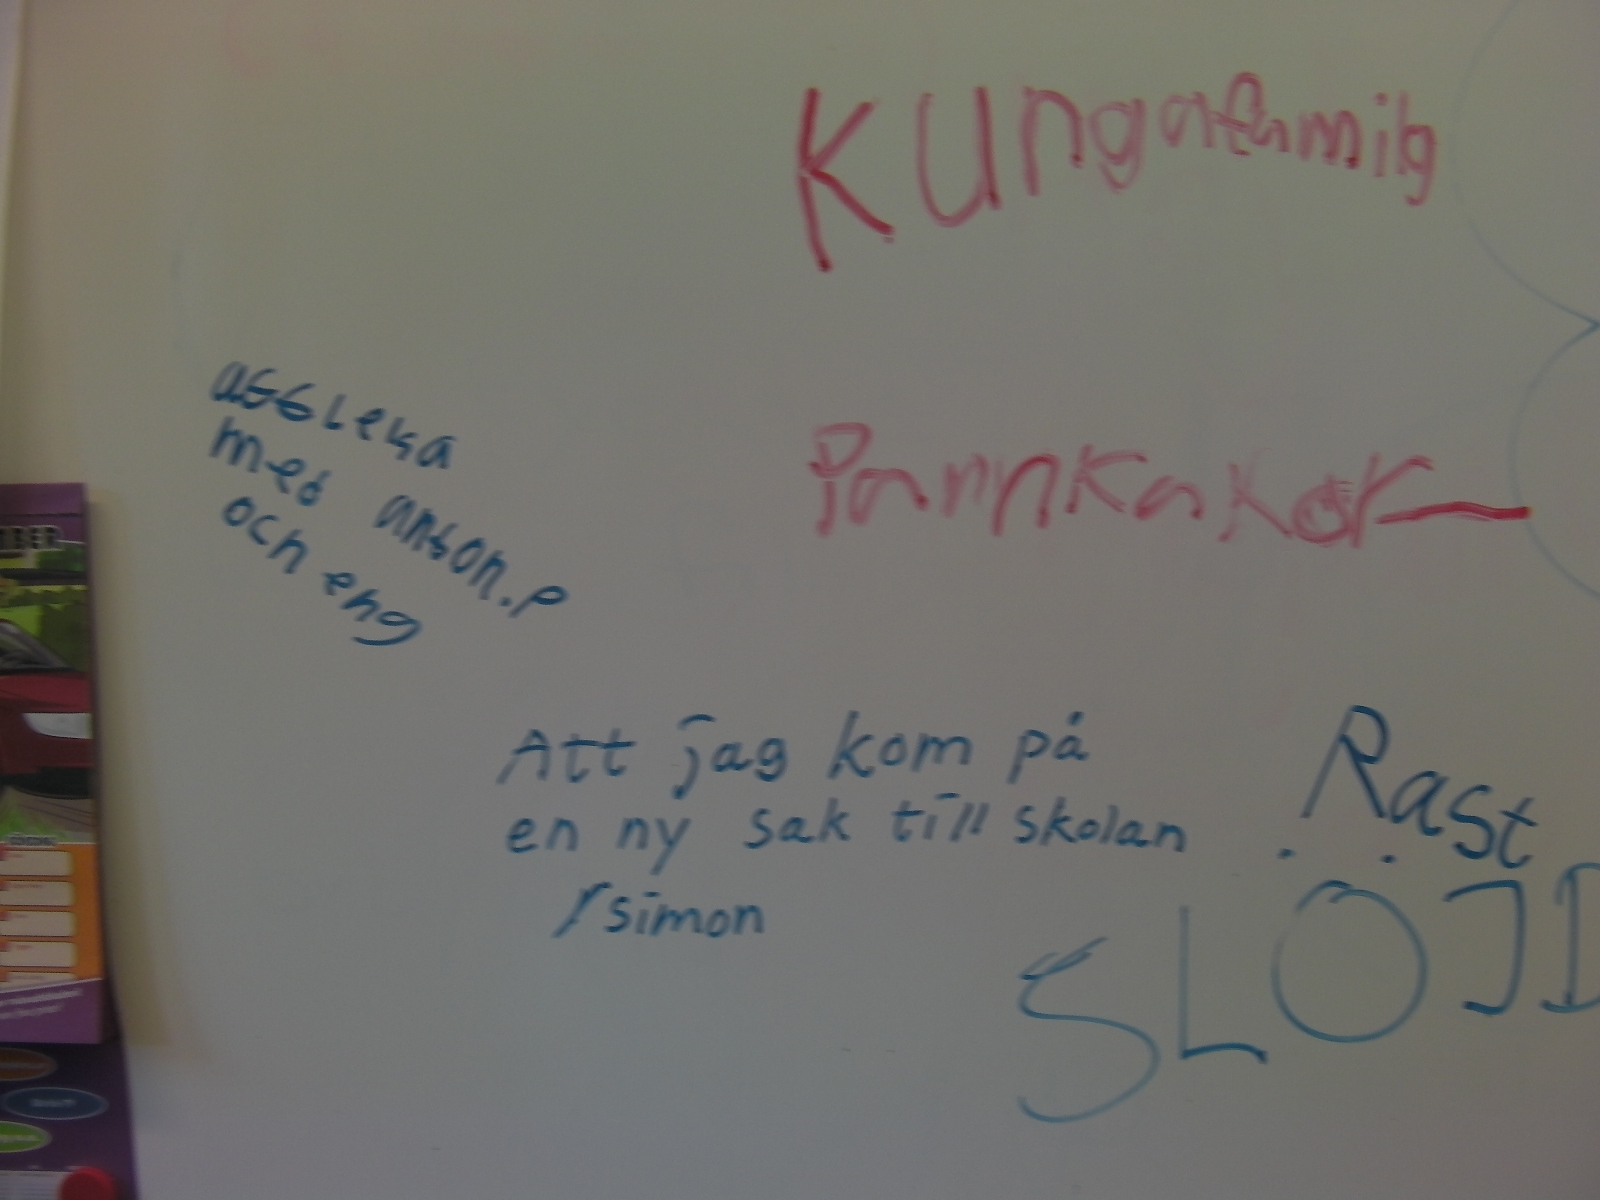 Kungafamilg
Pannkakor
assleka
med anson.p
och eng
Att jag kom på
en ny sak till skolan
/simon
Rast
SLÖJD
BER